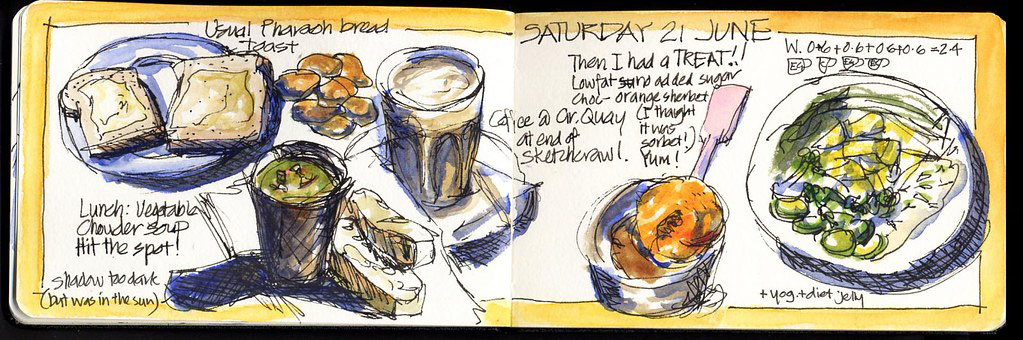 Usual Pharaoh bread
Toast
Lunch: Vegetable
Chouder soup
Hit the spot!
Shadow too dark
(but was in the sun)
Coffee @ Cir. Quay
at end of
Sketchcrawl.
SATURDAY 21 JUNE
Then I had a TREAT!!
Lowfat no added sugar
choc-orange sherbet
(I thought
it was
sorbet!)
Yum!
W. 0.6+0.6+0.6+0.6=2.4
+ yog. + diet jelly